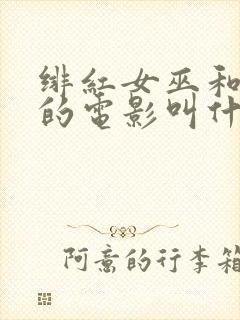 绯红女巫和
的電影叫什
阿意的行李箱